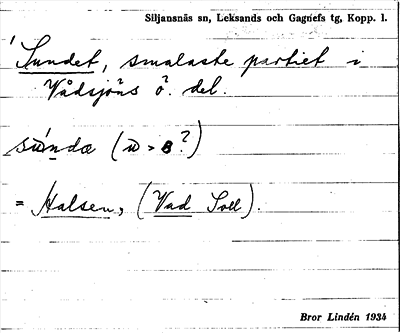 Siljansnäs sn, Leksands och Gagnefs tg, Kopp. l.
Sundet, smalaste partiet i
Vådsjöns ö. del.
(u > ?)
= Halsen, (Vad Soll).
Bror Lindén 1934